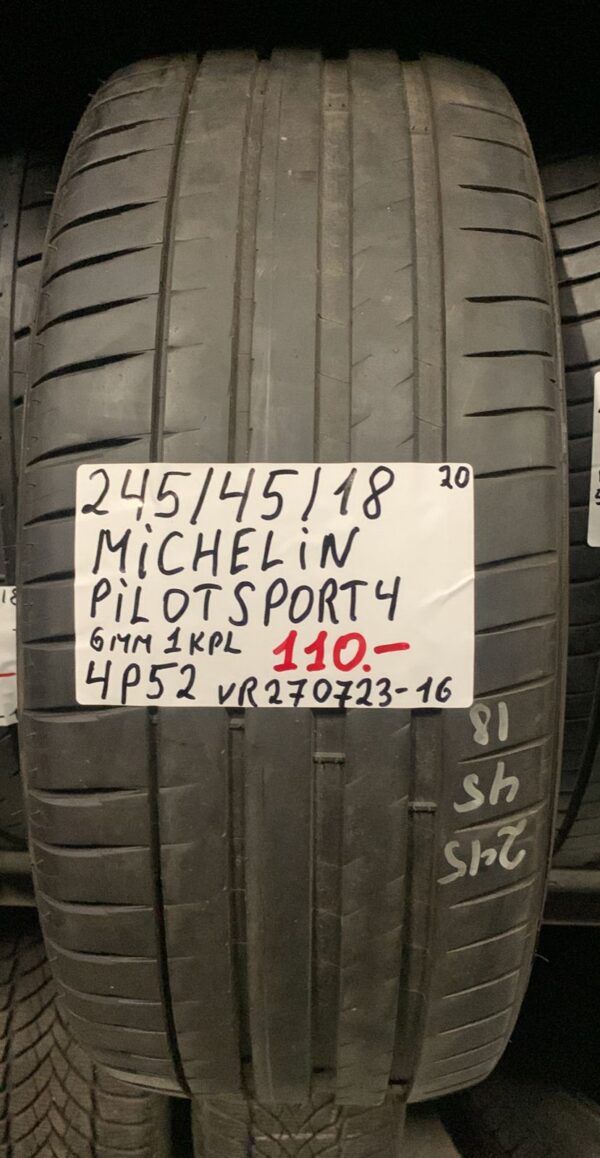 245/45/18 20
MiCHELiN
PiLOTSPORT4
6MM 1KPL 110.-
4P52 VR270723-16
18
45
245
18